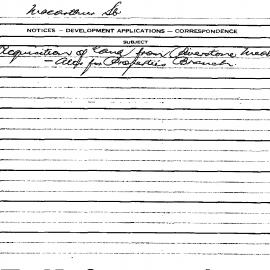 Macarthur St
NOTICES – DEVELOPMENT APPLICATIONS – CORRESPONDENCE
SUBJECT
Acquisition of land from Riverstone Meat
– Properties Branch